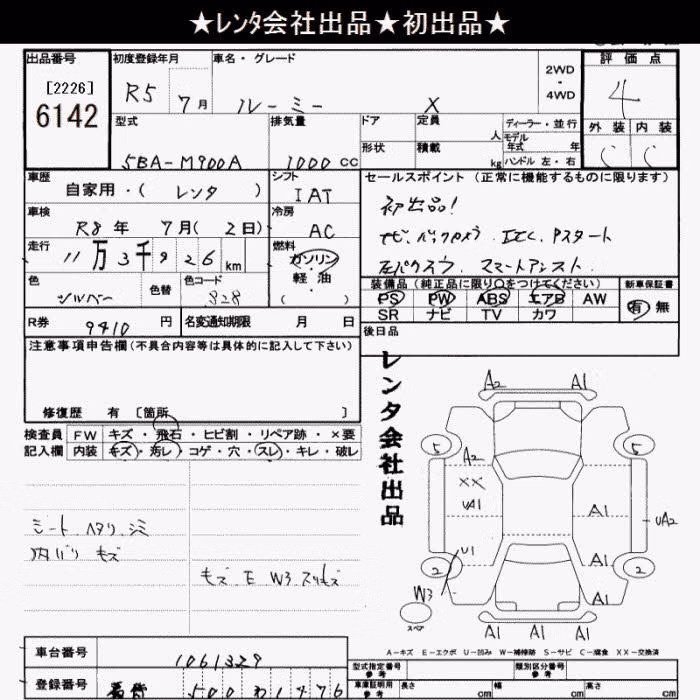 ★レンタ会社出品★初出品★
出品番号 初度登録年月 車名・グレード 2WD・4WD 評価点
[2226]
6142 R5 7月 ルーミー X 4
外装 内装
C C
型式 排気量 ドア 定員 人 ディーラー・並行
形状 積載 kg モデル年式 年
5BA-M900A 1000 CC ハンドル 左・右
車歴 自家用・( レンタ ) シフト IAT セールスポイント (正常に機能するものに限ります)
車検 R8年 7月( 2日) 冷房 AC 初出品!
走行 11万3千926km 燃料 ガソリン・軽油 ( )
ナビ、バックカメラ、ETC、Pスタート
左パワスラ スマートアシスト
色 シルバー 色替 色コード 828
装備品 (純正品に限り○をつけてください) 新車保証書
PS PW ABS エアB AW 有 無
SR ナビ TV カワ
R券 9410円 名変通知期限 月 日 後日品
注意事項申告欄(不具合内容等は具体的に記入して下さい)
修復歴 有 [箇所 ]
レンタ会社出品
検査員 FW キズ・飛石・ヒビ割・リペア跡・×要
記入欄 内装 キズ・汚レ・コゲ・穴・スレ・キレ・破レ
シート ヘタリ シミ
内バリ キズ
キズ E W3 スリキズ
A2 A1
5 5
A2
XX
UA1 A1 UA2
U1 A1
2 2
W3 A1
スペア
A1 A1 A1
A-キズ E-エクボ U-凹み W-補修跡 S-サビ C-腐食 XX-交換済
車台番号 1061329
登録番号 500 わ 1476
型式指定番号 参考 類別区分番号 参考
車庫証明用 参考 長さ cm 幅 cm 高さ cm